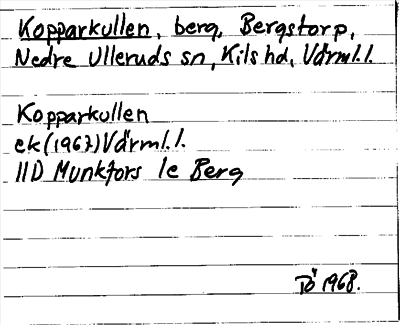 Kopparkullen, berg, Bergstorp,
Nedre Ulleruds sn, Kils hd, Värml.l.
Kopparkullen
ek (1967) Värml.l.
11D Munkfors 1e Berg
1968.